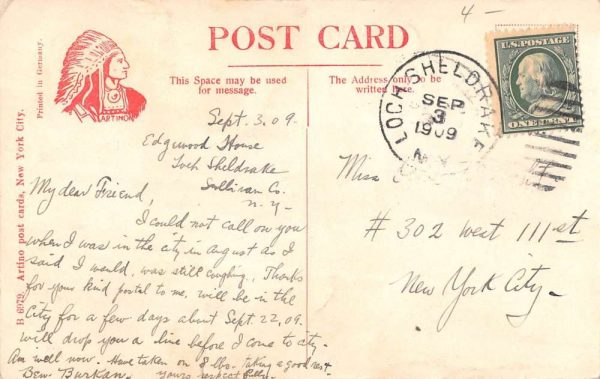 4 —
POST CARD
U.S. POSTAGE
ONE CENT
LOCH SHELDRAKE
SEP
3
1909
N.Y.
This Space may be used
for message.
The Address only to be
written here.
ARTINO
Printed in Germany.
B 6979. Artino post cards, New York City.
Sept. 3. 09.
Edgwood House
Loch Sheldrake
Sullivan Co.
N.Y.
My dear Friend,
I could not call on you
when I was in the city in august as I
said I would, was still coughing. Thanks
for your kind postal to me, will be in the
City for a few days about Sept. 22, 09.
will drop you a line before I come to city.
Am well now. Have taken on 8 lbs. taking a good rest
Yours respectfully
Ben Burkan.
Miss
# 302 West 111st
New York City.